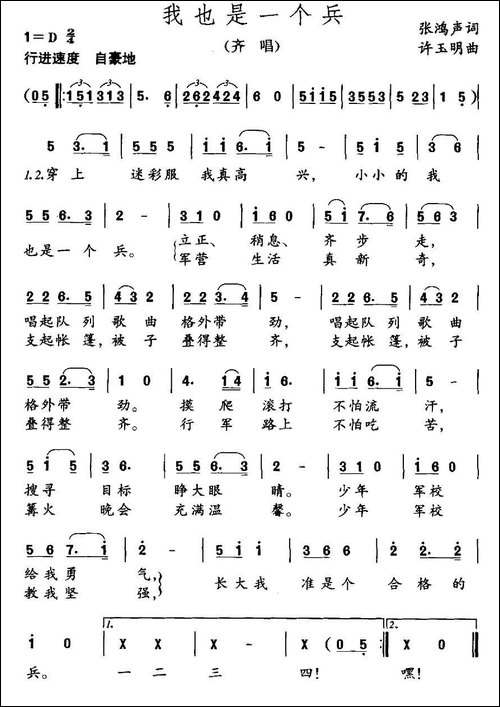 我也是一个兵
1=D 2/4
(齐唱)
张鸿声词
行进速度 自豪地
许玉明曲
(05 ‖: 151313 | 5. 6 | 262424 | 6 0 | 5115 | 3553 | 523 | 15) |
5 3.1 | 555 | 116.1 | 5 - | 515 | 36 |
1.2.穿上 迷彩服 我真高 兴， 小小的 我
556.3 | 2 - | 310 | 160 | 517.6 | 5 - |
也是一个 兵。 立正、 稍息、 齐步 走，
军营 生活 真新 奇，
226.5 | 432 | 223.4 | 5 - | 226.5 | 432 |
唱起队列 歌曲 格外带 劲， 唱起队列 歌曲
支起帐篷， 被子 叠得整 齐， 支起帐篷， 被子
552.3 | 10 | 4. 14 | 616 | 116.1 | 5 - |
格外带 劲。 摸爬 滚打 不怕流 汗，
叠得整 齐。 行军 路上 不怕吃 苦，
515 | 36. | 556.3 | 2 - | 310 | 160 |
搜寻 目标 睁大眼 睛。 少年 军校
篝火 晚会 充满温 馨。 少年 军校
567.1 | 2 - | 511 | 366 | 2 2. 2 |
给我勇 气，
长大我 准是个 合格的
教我坚 强，
1 0 | 1. X X | X - | X (05 :‖ 2. X 0 ‖
兵。 一二三 四！ 嘿！